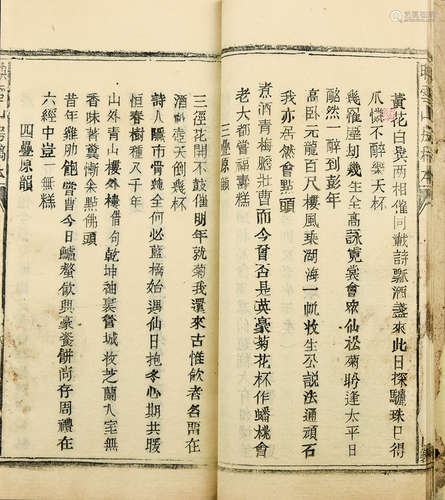 黃花白髮兩相催同載詩瓢酒盞來此日探驪珠已得
爪憐不醉樂天杯
幾催屋切幾生全高詠霓裳會眾仙松菊聆逢太平日
酕然一醉到彭年
高臥元龍百尺樓風乘湖海一帆收生公說法通頑石
我亦居然會點頭
煮酒青梅膽壯曹而今首否是英豪菊花杯作蟠桃會
老大都嘗福壽糕
三疊原韻
三徑花開不鼓催明年就菊我還來古惟飲者名留在
酒 壺天倒載杯
詩人 市骨 全何必藍橋始遇仙日抱冬心期共暖
恒春樹種八千年
山外青山樓外樓借句乾坤袖裏管城收芝蘭入室無
香味著糞慚余點佛頭
昔年雞肋飽嘗曹今日鱸螯飲興豪餈餅尚存周禮在
六經中豈一無糕
四疊原韻